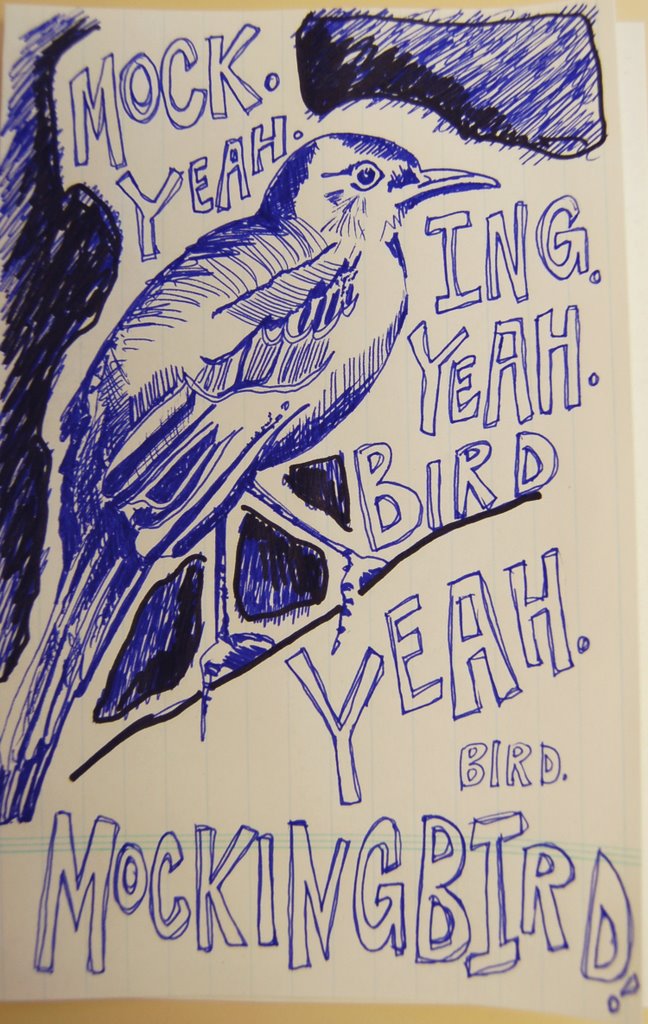 MOCK.
YEAH.
ING.
YEAH.
BIRD
YEAH.
BIRD.
MOCKINGBIRD!